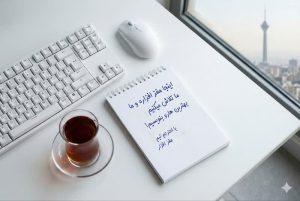 اینجا مقر افزاره و ما
ما تلاش میکنیم
بهترین هارو بنویسیم!
با احترام تیم
مقر افزار